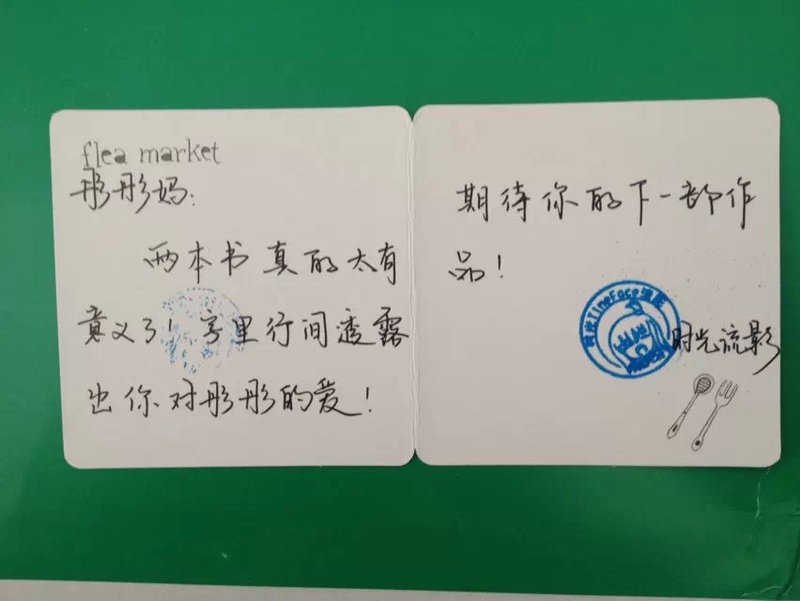 flea market
彤彤妈:
两本书真的太有
意义了!字里行间透露
出你对彤彤的爱!
期待你的下一部作
品!
时光流影